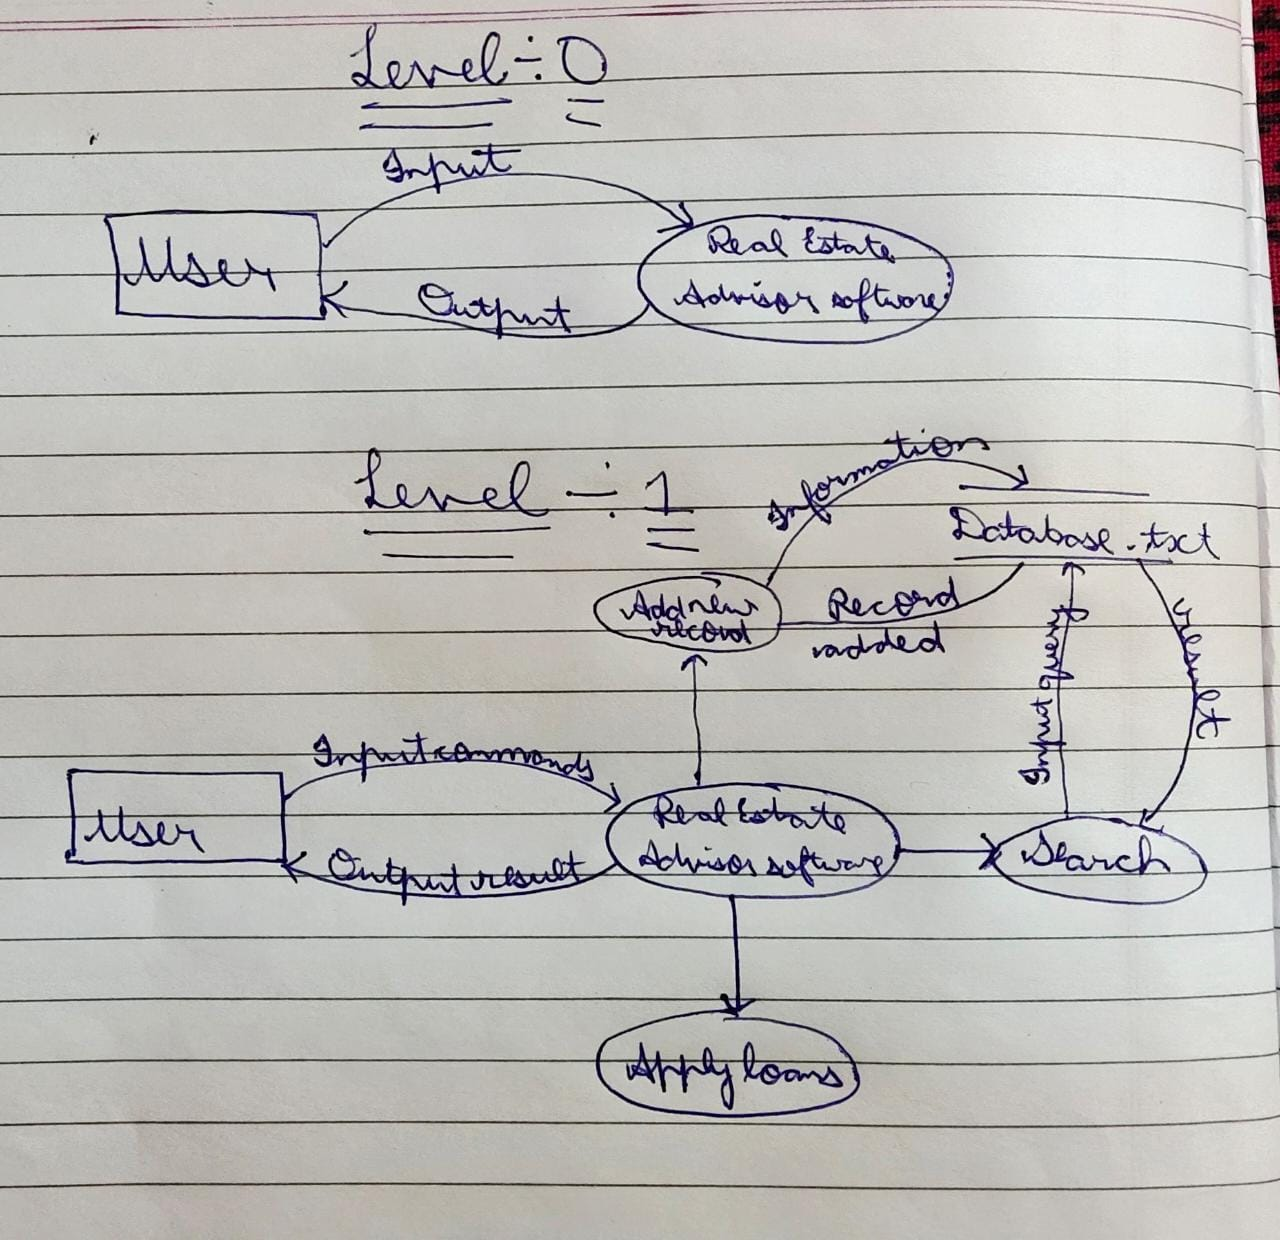 Level ÷ 0
Input
User
Real Estate
Advisor software
Output
Level ÷ 1
Information
Database.txt
Add new
record
Record
added
Input query
result
Input commands
User
Real Estate
Advisor software
Search
Output result
Apply loans